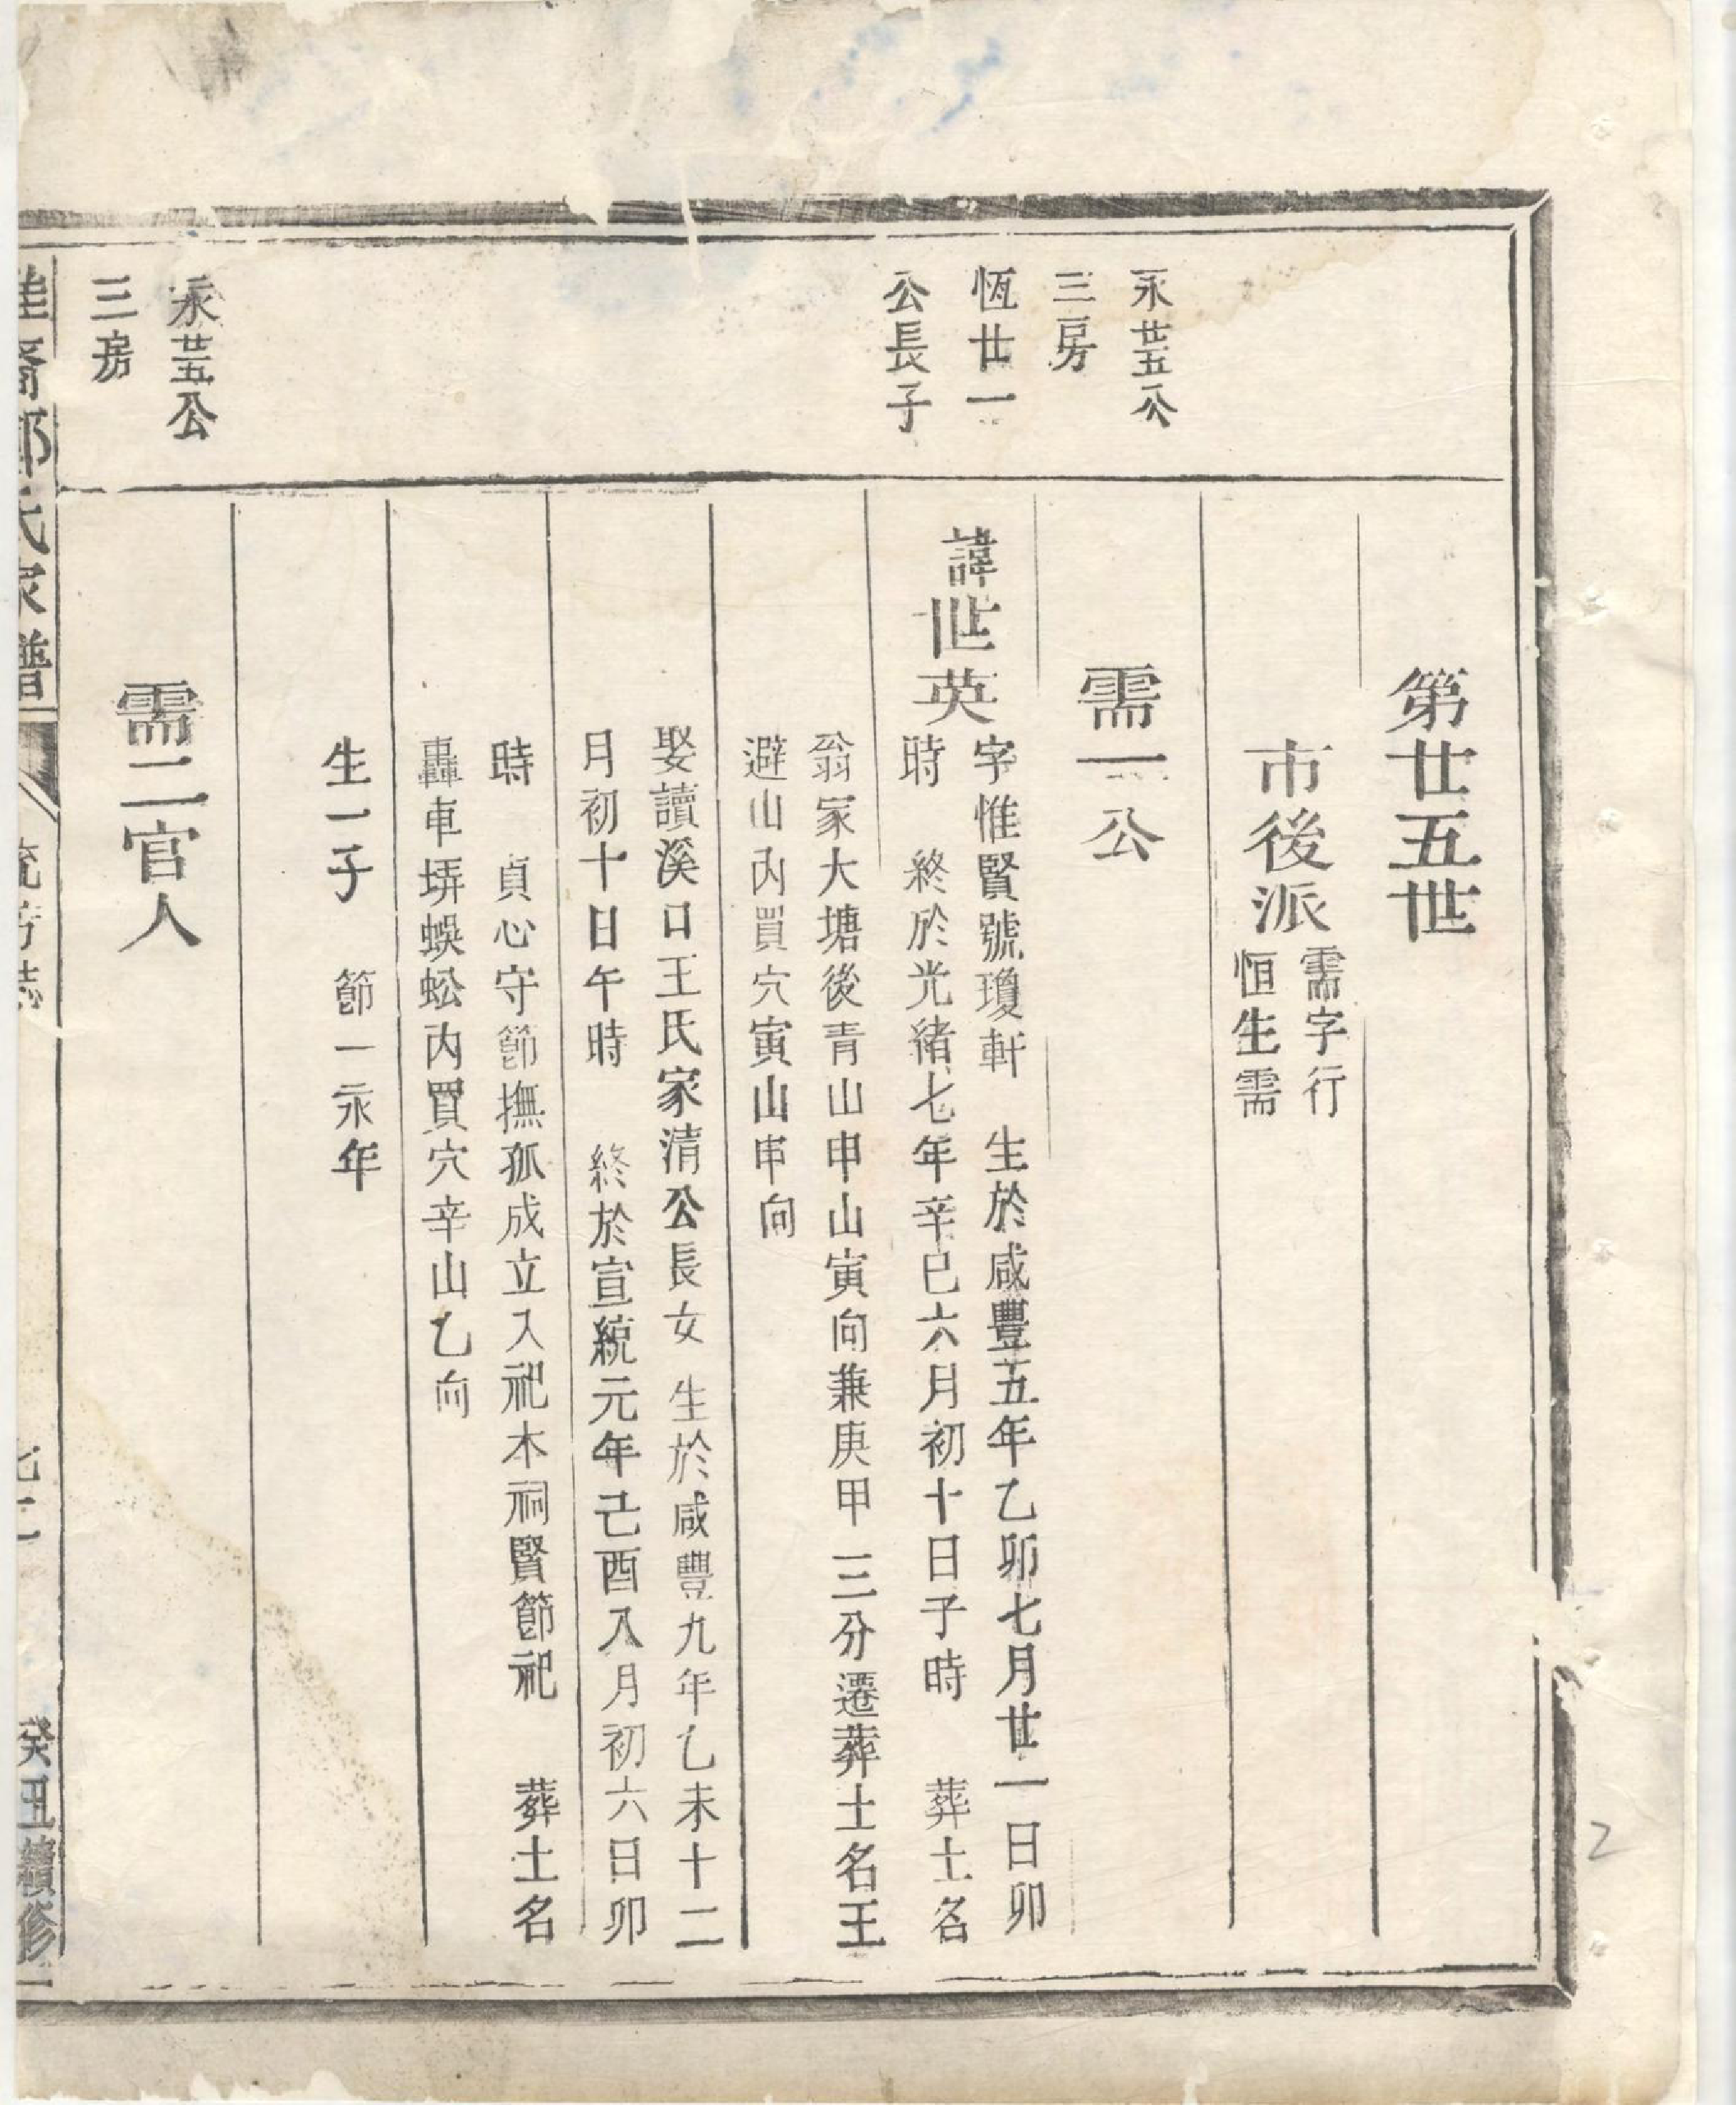 第廿五世
市後派
需字行
恒生需
永廿五公
三房
需一公
恆廿一
公長子
諱世英
字惟賢號瓊軒 生於咸豐五年乙卯七月廿一日卯
時 終於光緒七年辛巳六月初十日子時 葬土名
翁家大塘後青山申山寅向兼庚甲三分遷葬土名王
避山內買穴寅山申向
娶讀溪口王氏家清公長女 生於咸豐九年乙未十二
月初十日午時 終於宣統元年己酉八月初六日卯
時 貞心守節撫孤成立入祀本祠賢節祀 葬土名
轟車塝蜈蚣內買穴辛山乙向
生一子 節一永年
永廿五公
三房
需二官人
氏家譜
癸丑續修
2